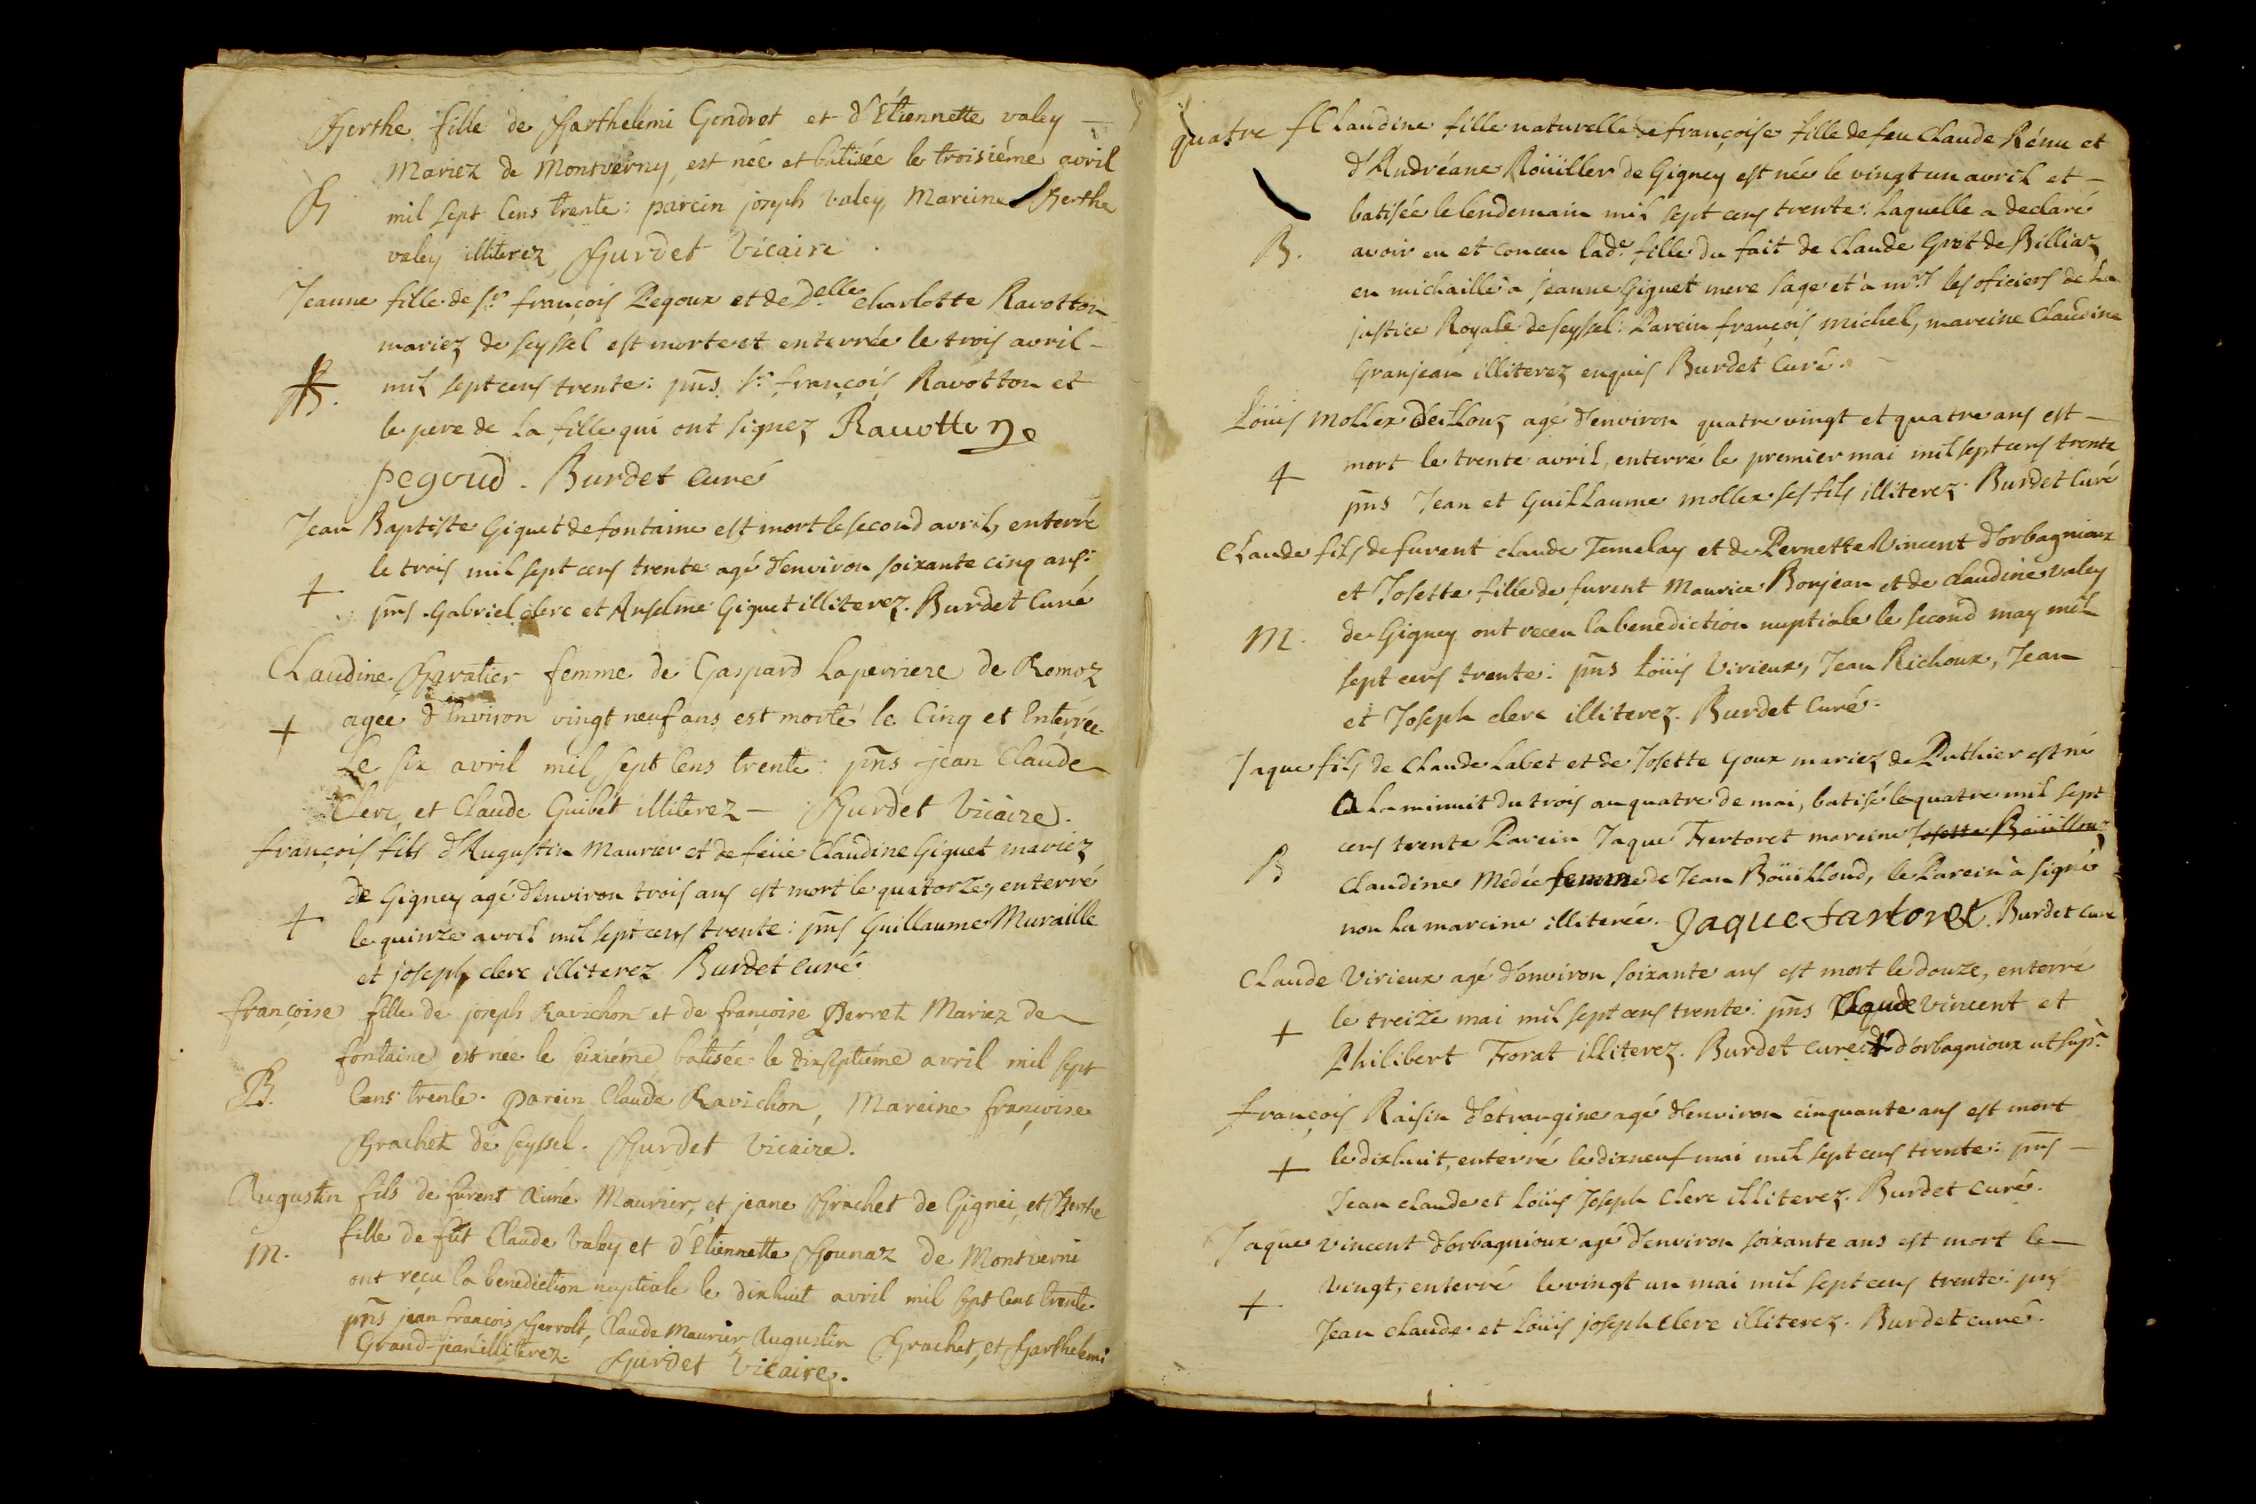 Berthe fille de Barthelemi Gendrot et d'Etiennette valey —
Mariez de Montverny, est née et batisée le troisiéme avril
B mil sept Cens trente: parein joseph Valey Mareine Berthe
valey illiterez Burdet Vicaire.
Jeanne fille de Sr. françois Pegoux et de Delle Charlotte Ravotton
mariez de seyssel est morte et enterrée le trois avril —
mil sept cens trente: pns Sr. françois Ravotton et
le pere de la fille qui ont signez Ravotton
pegoud. Burdet Curé
Jean Baptiste Giguet de fontaine est mort le second avril, enterré
+ le trois mil sept cens trente agé d'environ soixante cinq ans:
pns Gabriel clerc et Anselme Giguet illiterez. Burdet Curé
Claudine Baratier femme de Gaspard Laperriere de Remoz
+ agee d'Environ vingt neuf ans est morte le Cinq et Enterrée
Le six avril mil sept Cens trente: pns jean Claude
Clerc, et Claude Guibet illiterez — Burdet Vicaire.
françois fils d'Augustin Maurier et de feüe Claudine Giguet mariez
de Gigney agé d'environ trois ans est mort le quatorze, enterré
+ le quinze avril mil sept cens trente: pns Guillaume Muraille
et joseph clerc illiterez Burdet Curé
françoise fille de joseph Ravichon et de françoise Perret Mariez de
fontaine est nee le seixiéme, batisée le dixseptiéme avril mil sept
B. Cens trente. parein Claude Ravichon, Mareine françoise
Brachet de seyssel. Burdet Vicaire.
Augustin fils de furent Aimé Maurier, et jeane Brachet de Gignei, et Berthe
M. fille de fût Claude Valey et d'Etiennette Bounaz de Montverni
ont reçu la benediction nuptiale le dixhuit avril mil sept Cens trente
pns jean françois Berrolt, Claude Maurier, Augustin Brachet, et Barthelemi
Grand-jean illiterez. Burdet Vicaire.
quatre f Claudine fille naturelle de françoise fille de feu Claude Rénu et
d'Andréane Roüiller de Gigney est née le vingt un avril et —
batisée le lendemain mil sept cens trente: Laquelle a declaré
B. avoir eu et conceu lade. fille du fait de Claude Gret de Billiaz
en michaille à Jeanne Giguet mere sage et à mrs les oficiers de La
justice Royale de seyssel: Parein françois michel, mareine Claudine
Granjean illiterez enquis Burdet Curé. —
Loüis Mollex de Louz agé d'environ quatre vingt et quatre ans est —
+ mort le trente avril, enterré le premier mai mil sept cens trente
pns Jean et Guillaume mollex ses fils illiterez Burdet Curé
Claude fils de furent claude Temelay et de Pernette Vincent d'orbagnioux
et Josette fille de furent Maurice Bonjean et de Claudine valey
M. de Gigney ont receu la benediction nuptiale le second may mil
sept cens trente: pns Loüis Virieux, Jean Richoux, Jean
et Joseph clerc illiterez. Burdet Curé.
Jaque fils de Claude Labet et de Josette Goux mariez de Puthier est né
a La minuit du trois au quatre de mai, batisé le quatre mil sept
cens trente Parein Jaque Trertoret mareine Josette Boüillouz
B Claudine Medée femme de Jean Boüilloud, le Parein à signé
non la mareine illiterée. Jaque tartoret. Burdet Curé
Claude Virieux agé d'environ soixante ans est mort le douze, enterré
+ le treize mai mil sept cens trente: pns Claude vincent et
Philibert Trorat illiterez. Burdet curé d'orbagnioux ut supr.
françois Raisin d'étrangine agé d'environ cinquante ans est mort
+ le dixhuit, enterré le dixneuf mai mil sept cens trente: pns —
Jean claude et Loüis Joseph Clerc illiterez. Burdet curé.
Jaque vincent d'orbagnioux agé d'environ soixante ans est mort le —
+ vingt, enterré le vingt un mai mil sept cens trente: pns
Jean claude et Loüis joseph Clerc illiterez. Burdet curé.